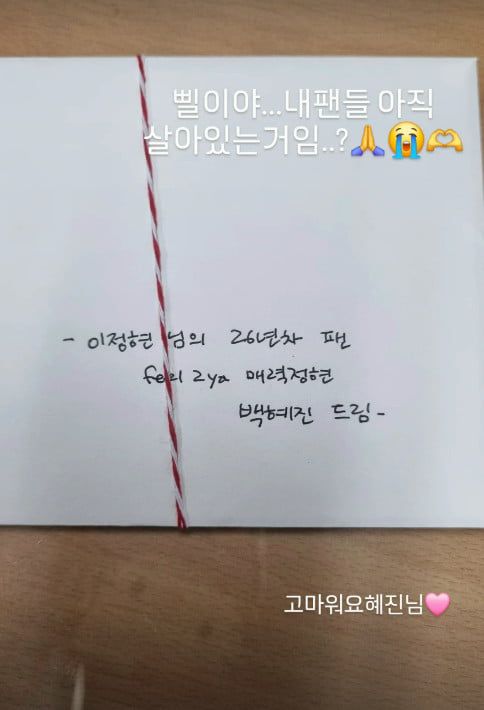 삘이야...내팬들 아직
살아있는거임..?🙏😭🫶
- 이정현 님의 26년차 팬
feel 2ya 매력정현
백혜진 드림-
고마워요혜진님🩷